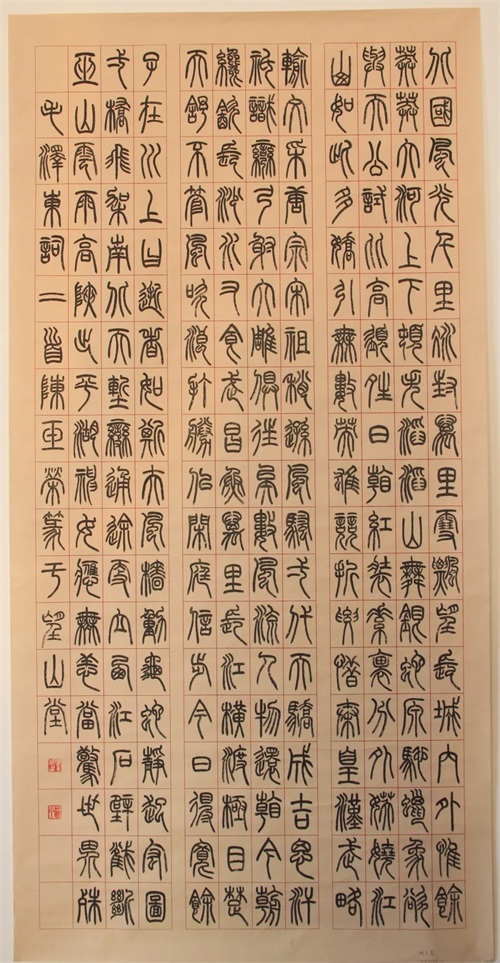 北國風光千里冰封萬里雪飄望長城內外惟餘
莽莽大河上下頓失滔滔山舞銀蛇原馳蠟象欲
與天公試比高須晴日看紅裝素裹分外妖嬈江
山如此多嬌引無數英雄競折腰惜秦皇漢武略
輸文采唐宗宋祖稍遜風騷弌代天驕成吉思汗
祇識彎弓射大雕俱往矣數風流人物還看今朝
纔飲長沙水又食武昌魚萬里長江橫渡極目楚
天舒不管風吹浪打勝似閑庭信步今日得寬餘
子在川上曰逝者如斯夫風檣動龜蛇靜起宏圖
弌橋飛架南北天塹變通途更立西江石壁截斷
巫山雲雨高峽出平湖神女應無恙當驚世界殊
毛澤東詞二首陳亞榮篆于望山堂